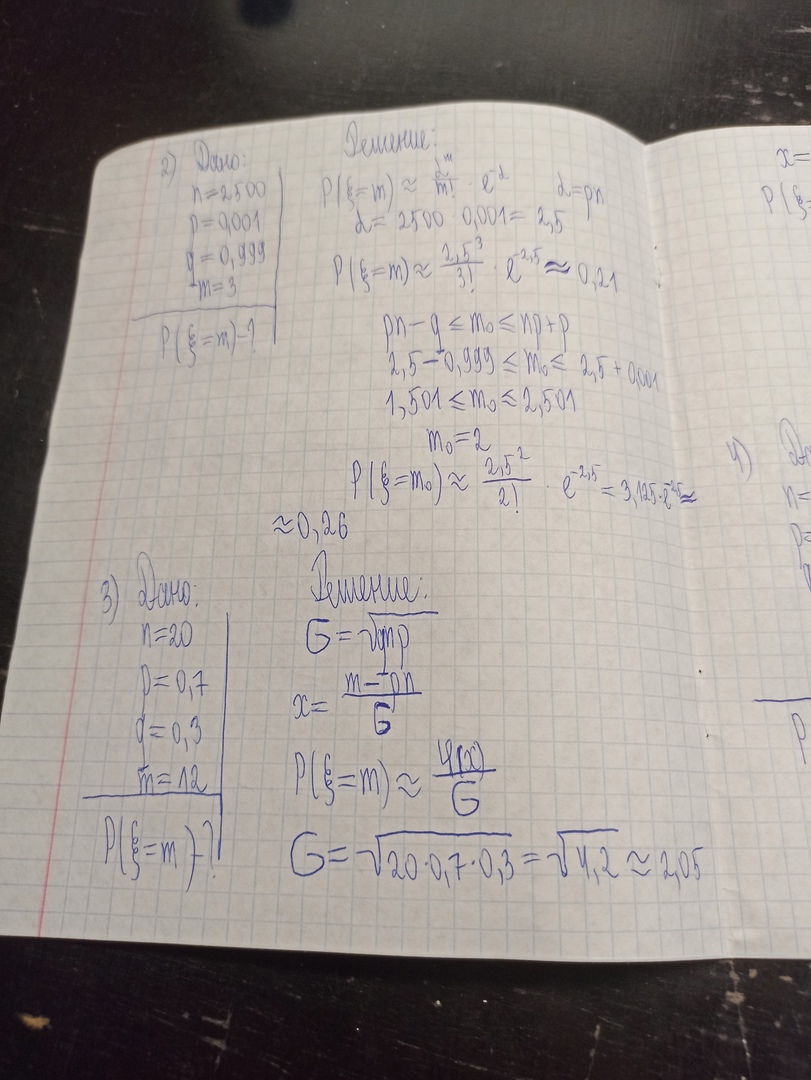 2) Дано:
n=2500
p=0,001
q=0,999
m=3
P(ξ=m)-?
Решение:
P(ξ=m) ≈ λ^m/m! · e^-λ λ=pn
λ = 2500 · 0,001 = 2,5
P(ξ=m) ≈ 2,5^3/3! · e^-2,5 ≈ 0,21
pn-q ≤ m₀ ≤ np+p
2,5-0,999 ≤ m₀ ≤ 2,5+0,001
1,501 ≤ m₀ ≤ 2,501
m₀=2
P(ξ=m₀) ≈ 2,5^2/2! · e^-2,5 = 3,125·e^-2,5 ≈
≈0,26
3) Дано:
n=20
p=0,7
q=0,3
m=12
P(ξ=m)-?
Решение:
G=√qnp
x= m-pn/G
P(ξ=m) ≈ φ(x)/G
G=√20·0,7·0,3 = √4,2 ≈ 2,05
x=
P(ξ=
4)
n=
p=
P